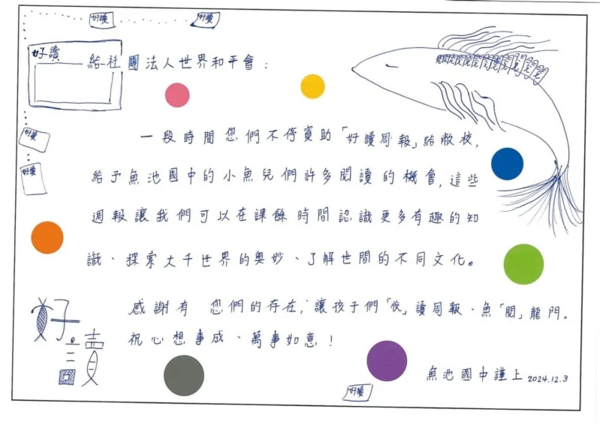 好讀 好讀
好讀
給社團法人世界和平會：
一段時間您們不停資助「好讀周報」給敝校，
好讀
給予魚池國中的小魚兒們許多閱讀的機會，這些
好讀
週報讓我們可以在課餘時間認識更多有趣的知
識、探索大千世界的奧妙、了解世間的不同文化。
感謝有 您們的存在，讓孩子們「悅」讀周報、魚「閱」龍門。
祝心想事成、萬事如意！
好讀
魚池國中謹上 2024.12.3
好讀